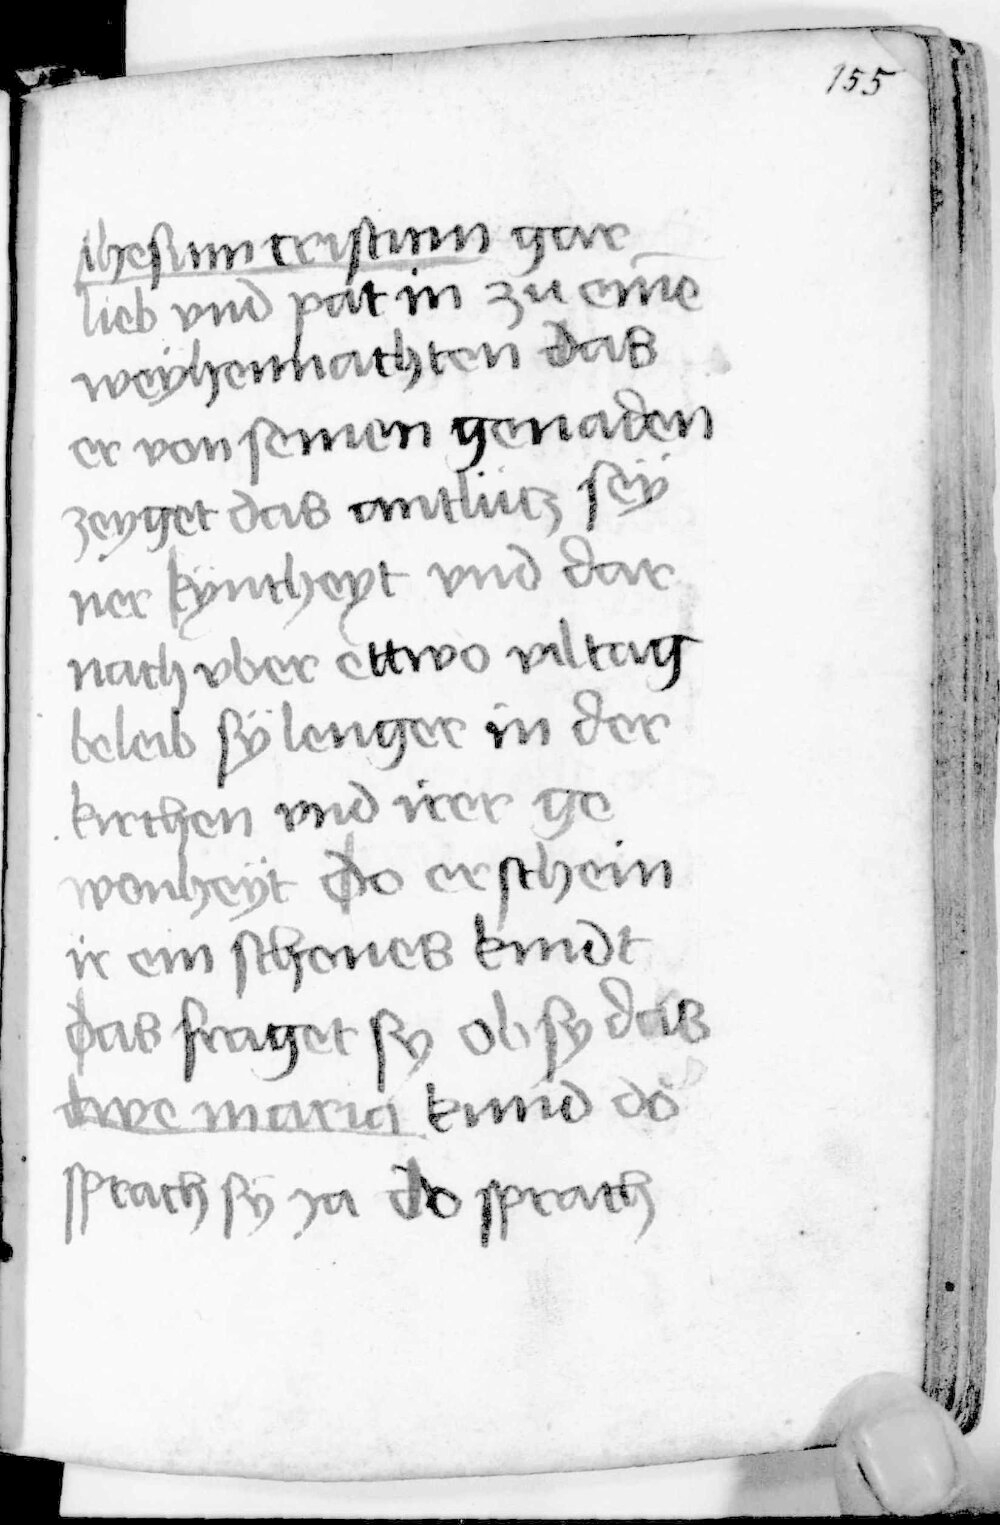 155
ihesum cristum gar
lieb vnd pat in zu eine
weyhennachten das
er von seinen genaden
zeyget das antlütz seÿ
ner kyntheyt vnd dar
nach vber ettwo vil tag
beleib sÿ lenger in der
kirchen vnd irer ge
wonheÿt do erschein
ir ein schones kindt
das fraget sy ob sy das
awe maria kund do
sprach sÿ ya do sprach